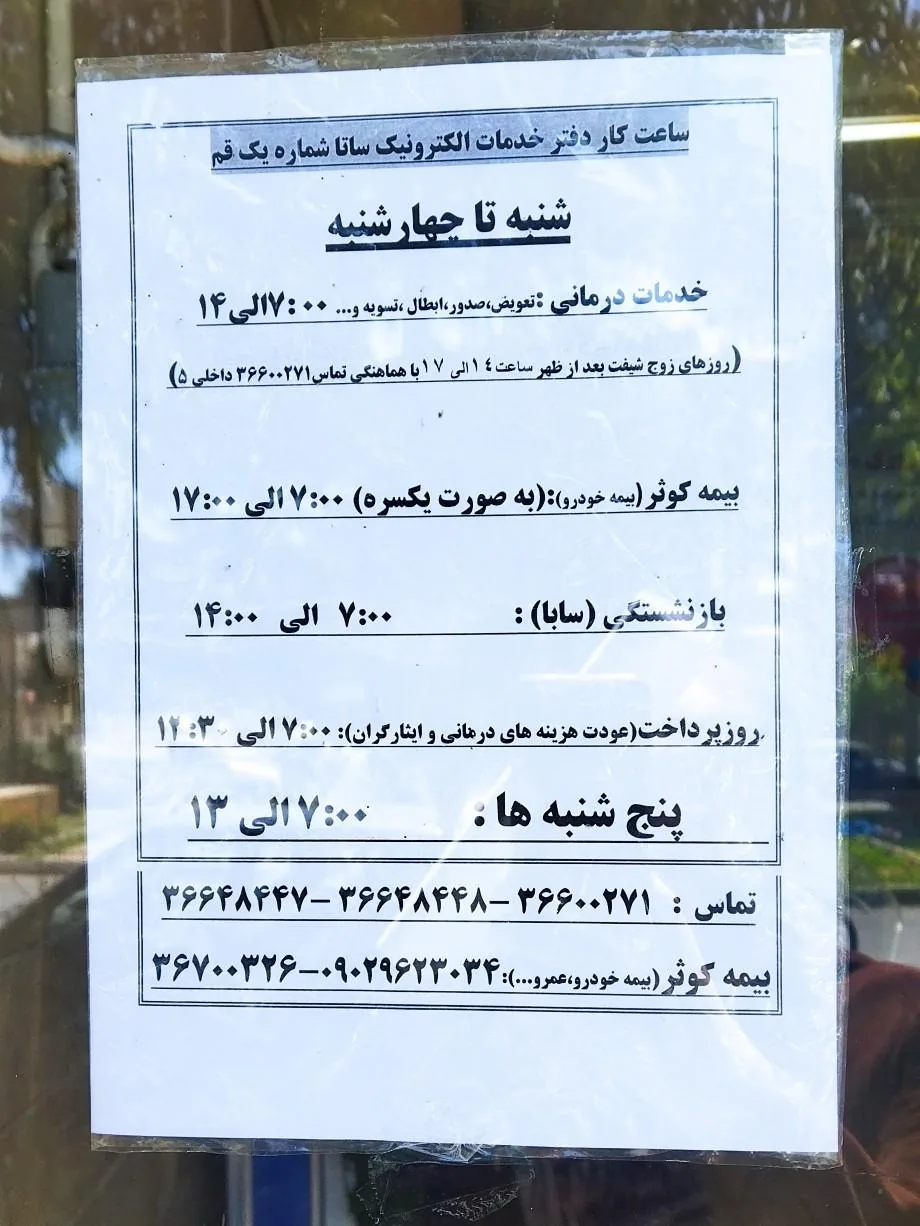 ساعت کار دفتر خدمات الکترونیک ساتا شماره یک قم
شنبه تا چهارشنبه
خدمات درمانی :تعویض،صدور،ابطال ،تسویه و... ۷:۰۰الی۱۴
(روزهای زوج شیفت بعد از ظهر ساعت ۱٤ الی ۱۷ با هماهنگی تماس۳۶۶۰۰۲۷۱ داخلی ۵)
بیمه کوثر(بیمه خودرو):(به صورت یکسره) ۷:۰۰ الی ۱۷:۰۰
بازنشستگی (سابا) : ۷:۰۰ الی ۱۴:۰۰
روزپرداخت(عودت هزینه های درمانی و ایثارگران): ۷:۰۰ الی ۱۲:۳۰
پنج شنبه ها : ۷:۰۰ الی ۱۳
تماس : ۳۶۶۰۰۲۷۱ –۳۶۶۴۸۴۴۸ –۳۶۶۴۸۴۴۷
بیمه کوثر (بیمه خودرو،عمرو...):۰۹۰۲۹۶۲۳۰۳۴–۳۶۷۰۰۳۲۶